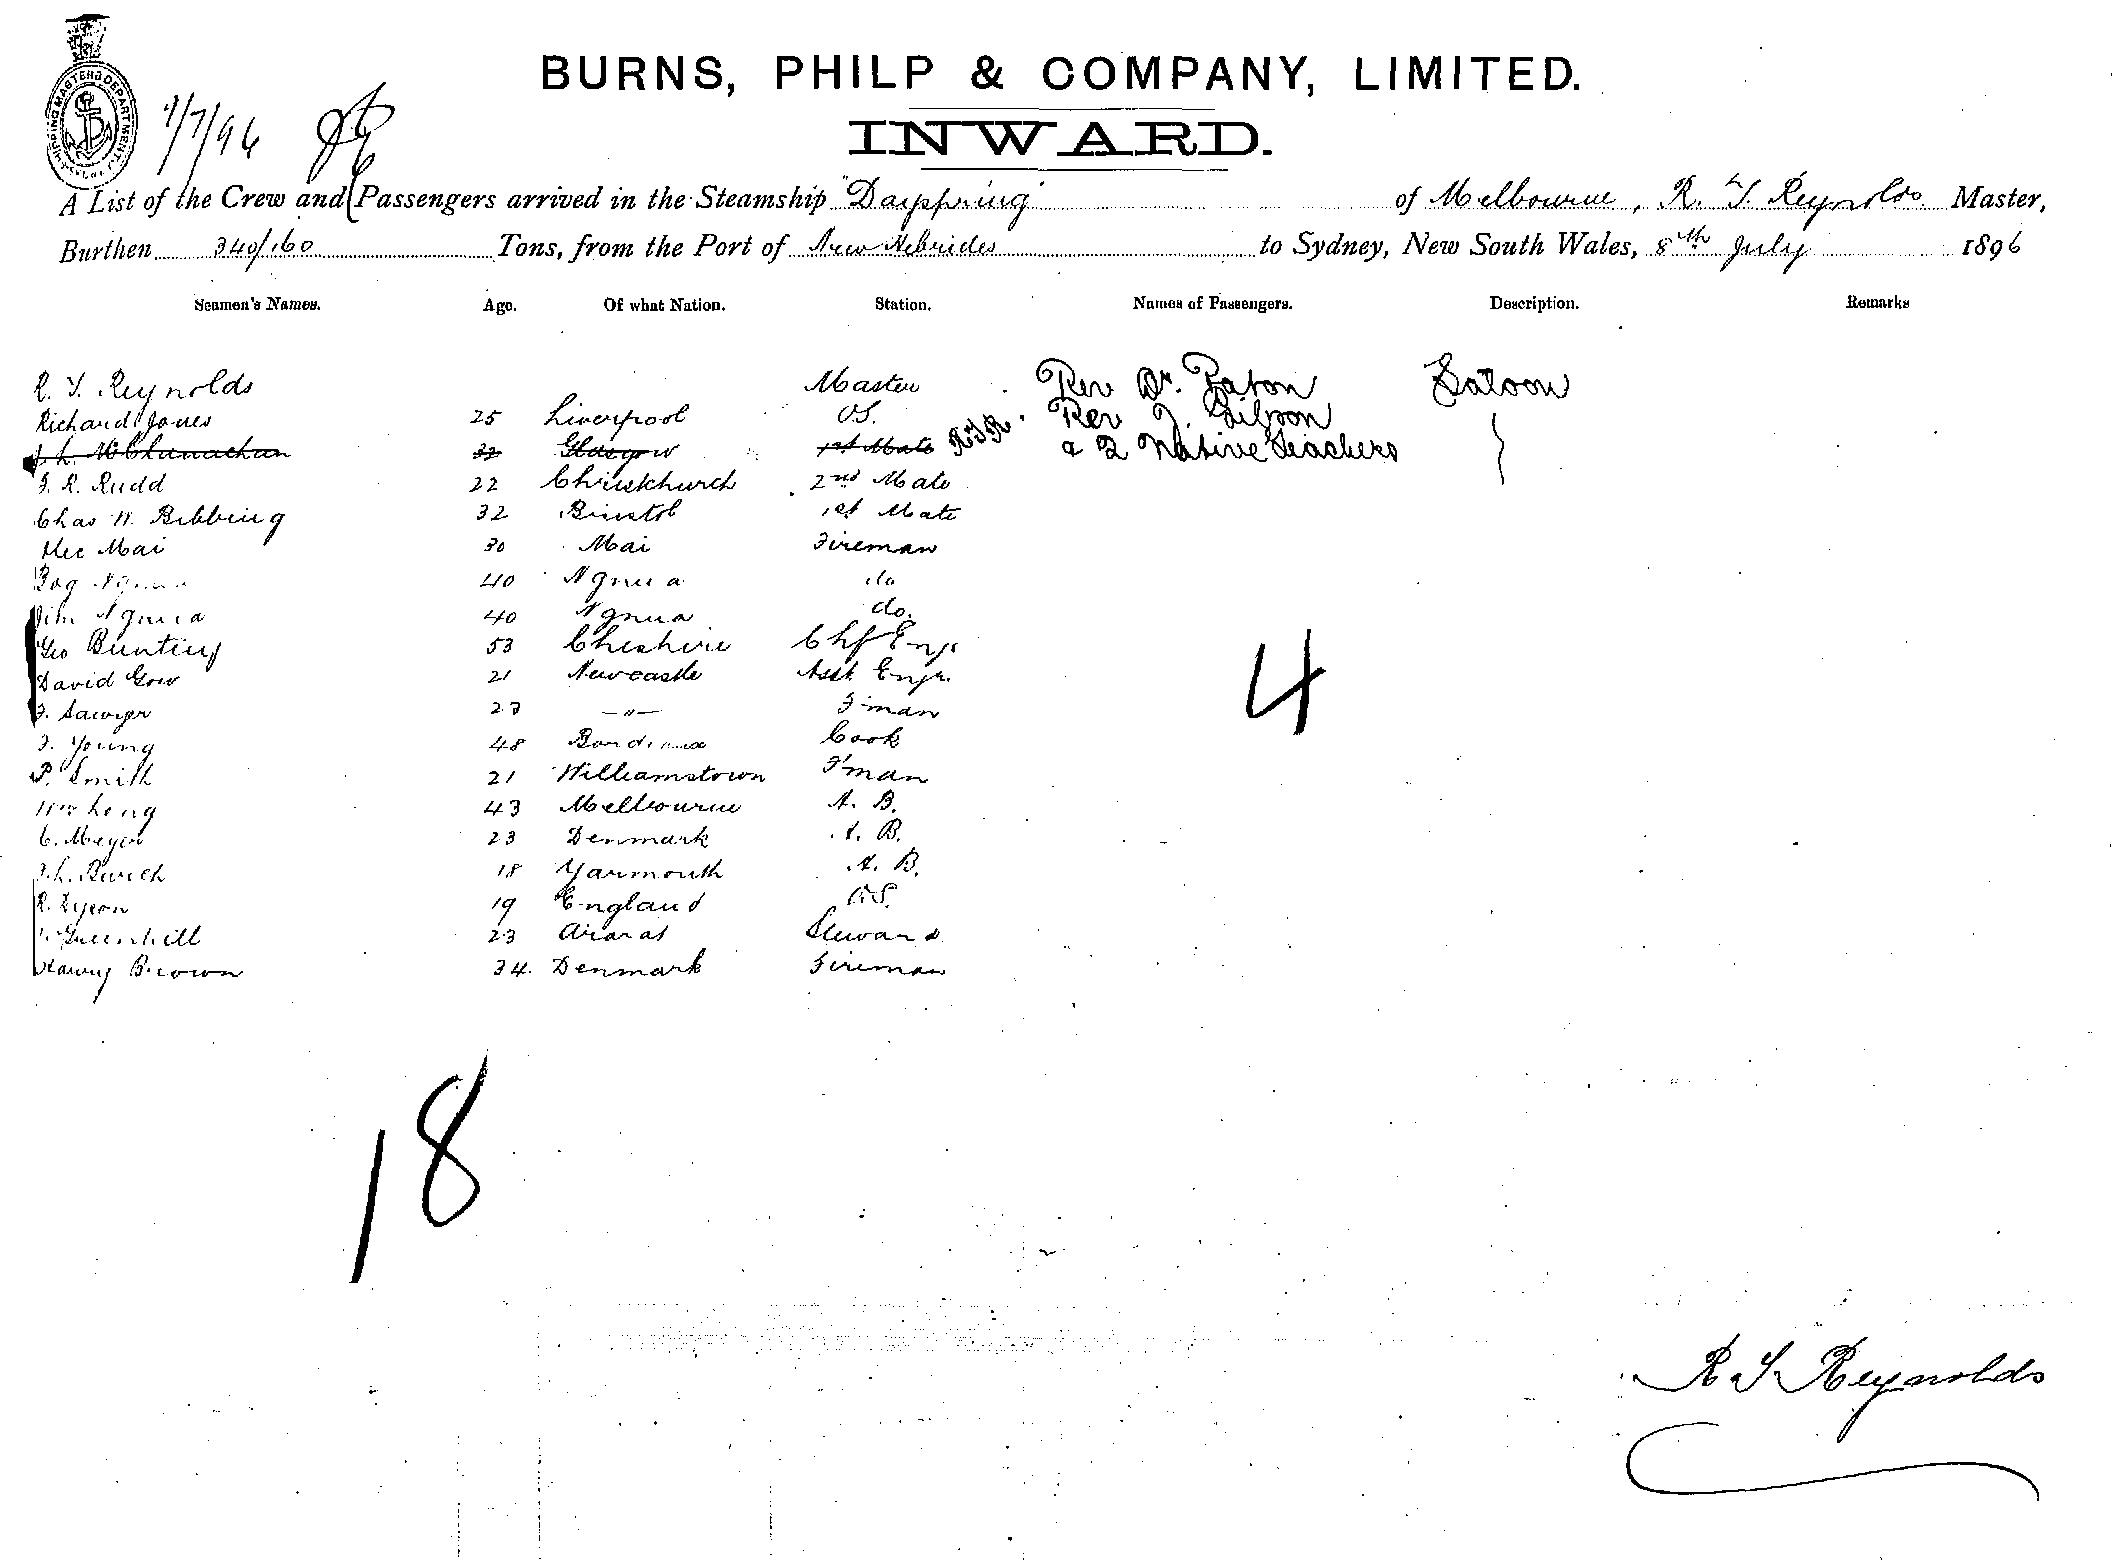 BURNS, PHILP & COMPANY, LIMITED.
INWARD.
SHIPPING MASTER'S DEPARTMENT
9/7/96
A List of the Crew and Passengers arrived in the Steamship "Dayspring" of Melbourne, R. T. Reynolds Master,
Burthen 340/160 Tons, from the Port of New Hebrides to Sydney, New South Wales, 8th July 1896
Seamen's Names. Age. Of what Nation. Station. Names of Passengers. Description. Remarks
R. T. Reynolds Master Rev Dr. Paton Saloon
Richard Jones 25 Liverpool O.S. Rev J. Gibson
32 Glasgow 1st Mate R.T.R. & 2 Native Teachers
J. R. Rudd 22 Christchurch 2nd Mate
Chas W. Bibbing 32 Bristol 1st Mate
Mai 30 Mai Fireman
40 Ngnua do
Jim Ngnua 40 Ngnua do.
Geo Bunting 53 Cheshire Chf Engr
David Gow 21 Newcastle Asst Engr.
J. Sawyer 23 —"— F'man
J. Young 48 Bordeaux Cook
P. Smith 21 Williamstown F'man
Wm Long 43 Melbourne A. B.
C. Meyer 23 Denmark A. B.
18 Yarmouth A. B.
R. 19 England O.S.
Greenhill 23 Ararat Steward
Harry Brown 34. Denmark Fireman
4
18
R. T. Reynolds